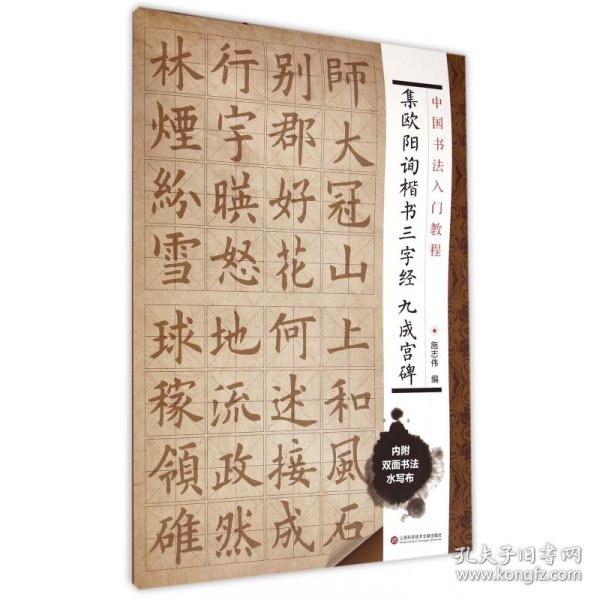 中国书法入门教程
集欧阳询楷书三字经 九成宫碑
施志伟 编
内附
双面书法
水写布
師大冠山上和風石
别郡好花何述接成
行宇暎怒地流政然
林煙紛雪球稼領碓
上海科学技术文献出版社
孔夫子旧书网
www.kongfz.com